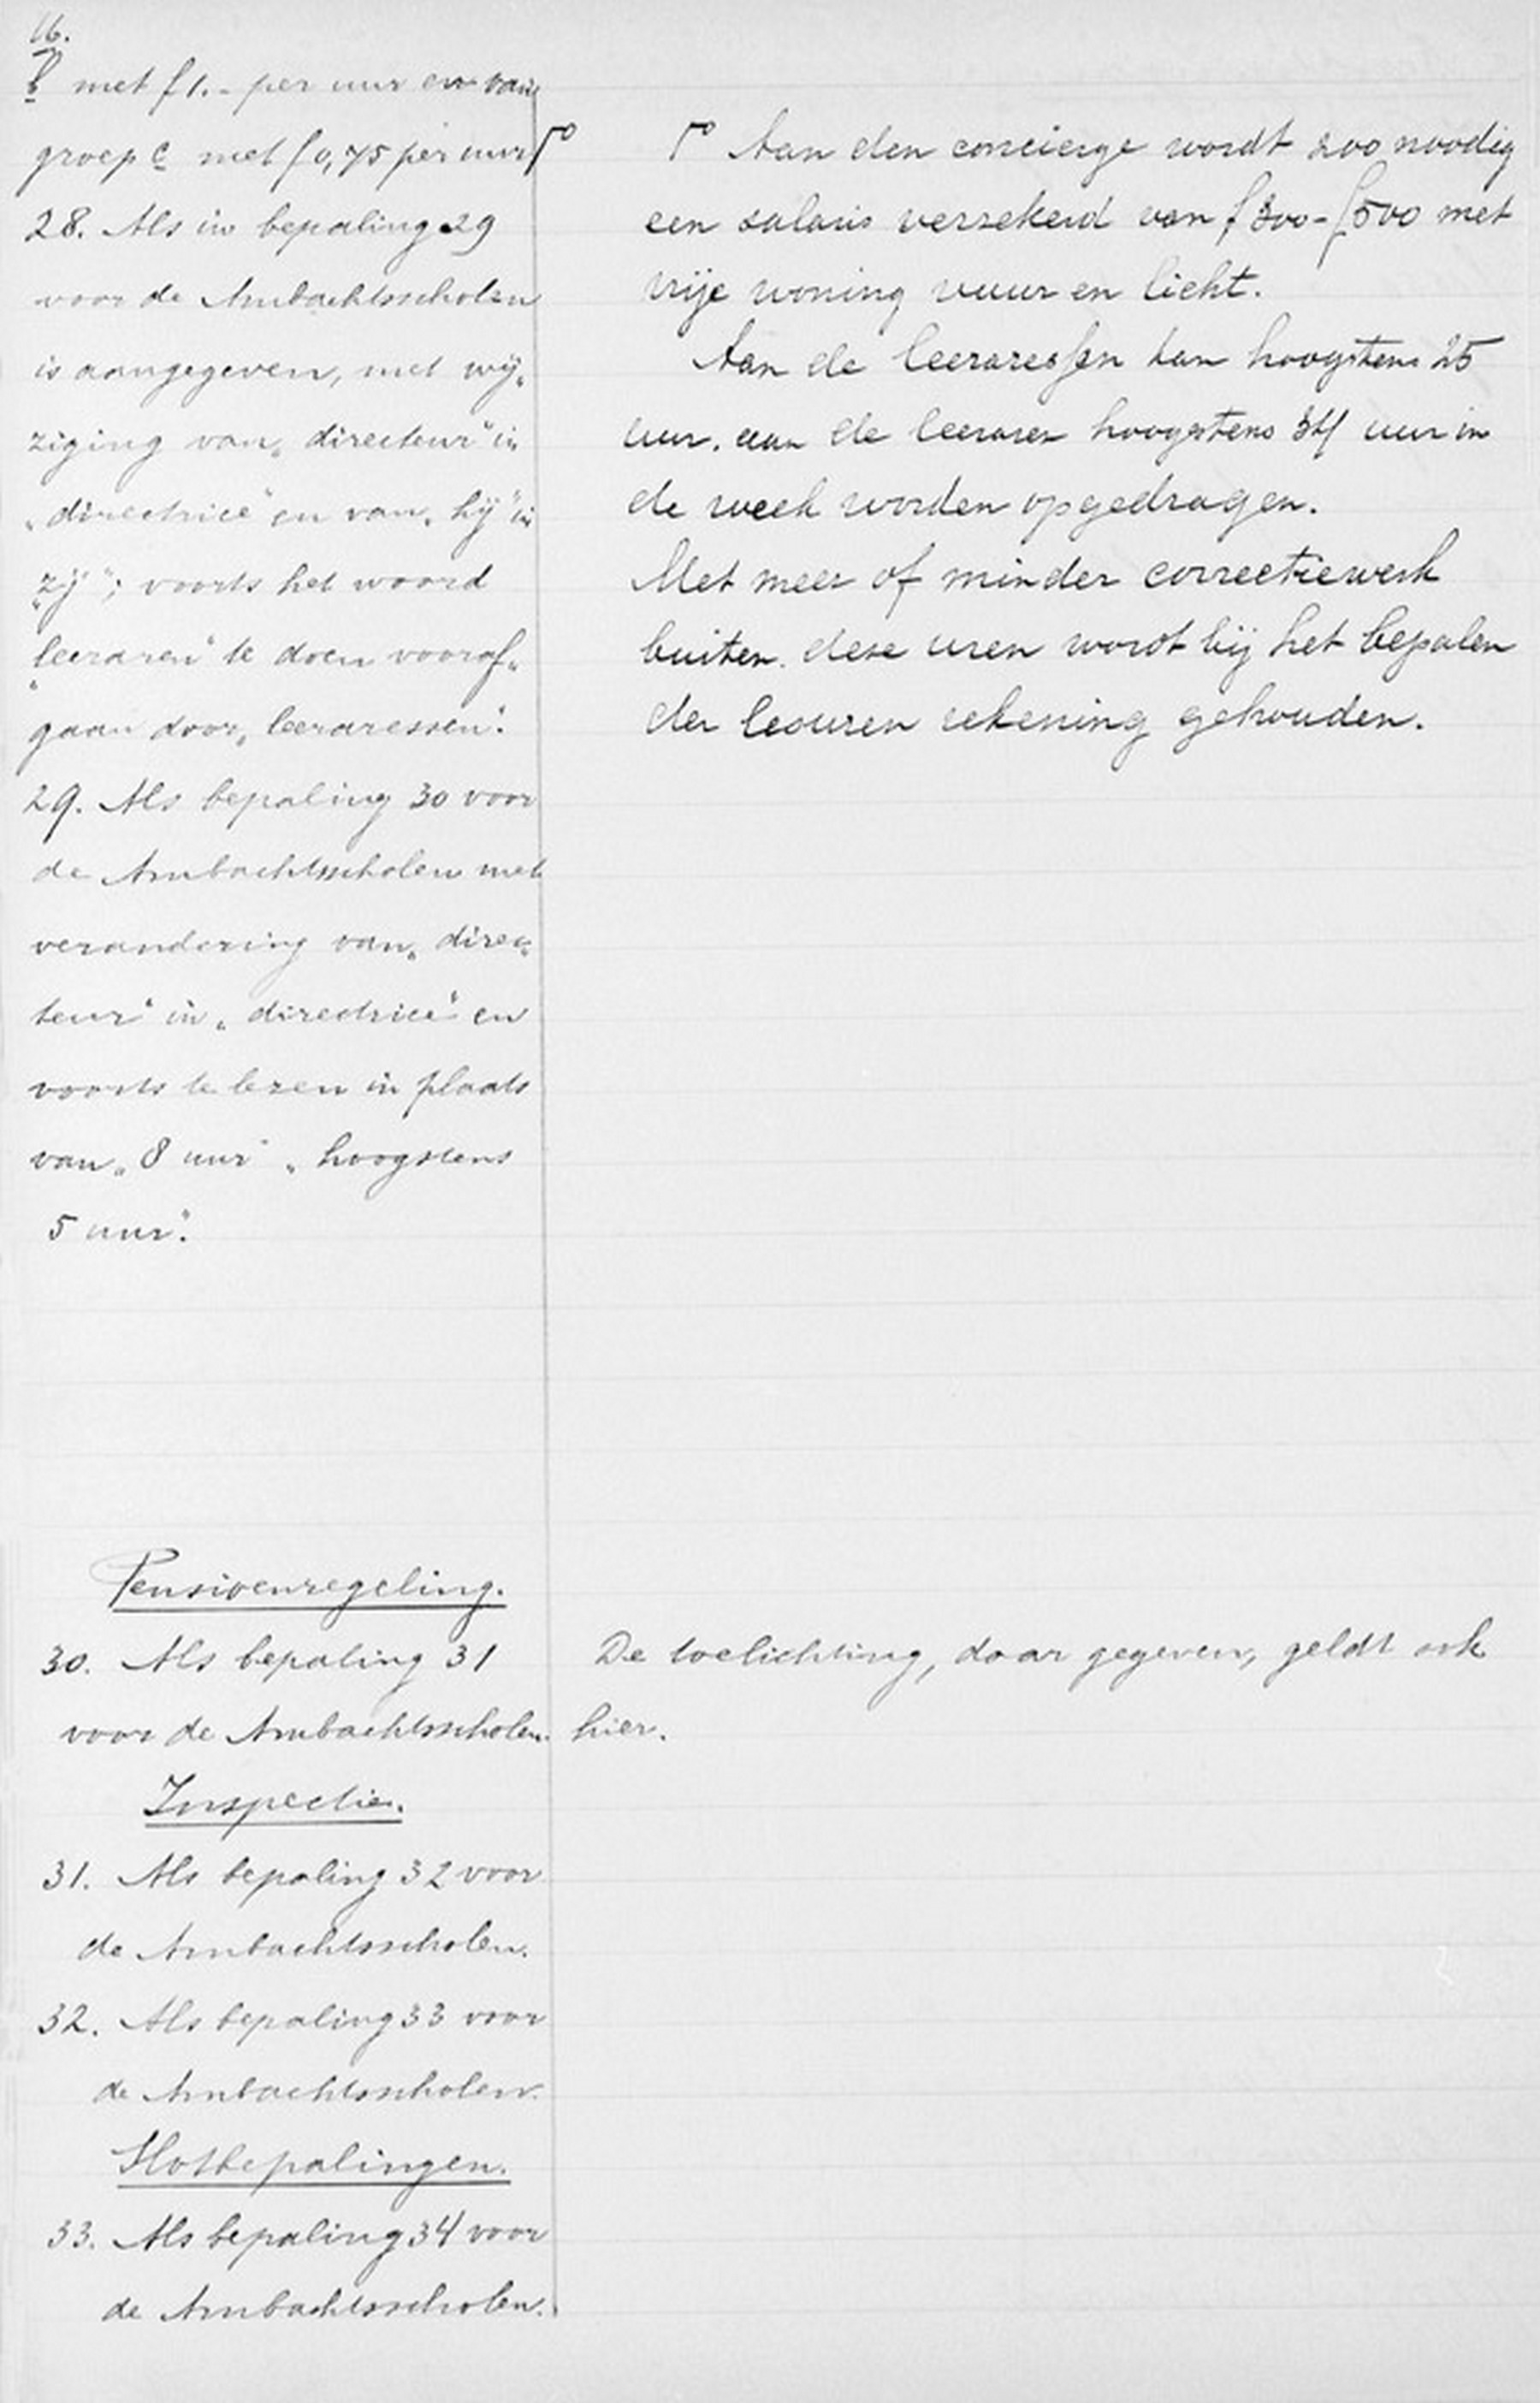 16.
b met f 1.- per uur en van
groep c met f 0,75 per uur Γ°
28. Als in bepaling 29
voor de Ambachtsscholen
is aangegeven, met wij„
ziging van „directeur" in
„directrice" en van „hij" in
„zij"; voorts het woord
„leeraren" te doen vooraf„
gaan door „leeraressen".
29. Als bepaling 30 voor
de Ambachtsscholen met
verandering van „direc„
teur" in „directrice" en
voorts te lezen in plaats
van „8 uur" „hoogstens
5 uur".
Γ° Aan den concierge wordt zoo noodig
een salaris verzekerd van f 300 - f 500 met
vrije woning vuur en licht.
Aan de leeraressen kan hoogstens 25
uur, aan de leeraren hoogstens 34 uur in
de week worden opgedragen.
Met meer of minder correctiewerk
buiten deze uren wordt bij het bepalen
der lesuren rekening gehouden.
Pensioenregeling.
30. Als bepaling 31
voor de Ambachtsscholen.
De toelichting, daar gegeven, geldt ook
hier.
Inspectie.
31. Als bepaling 32 voor
de Ambachtsscholen.
32. Als bepaling 33 voor
de Ambachtsscholen.
Slotbepalingen.
33. Als bepaling 34 voor
de Ambachtsscholen.